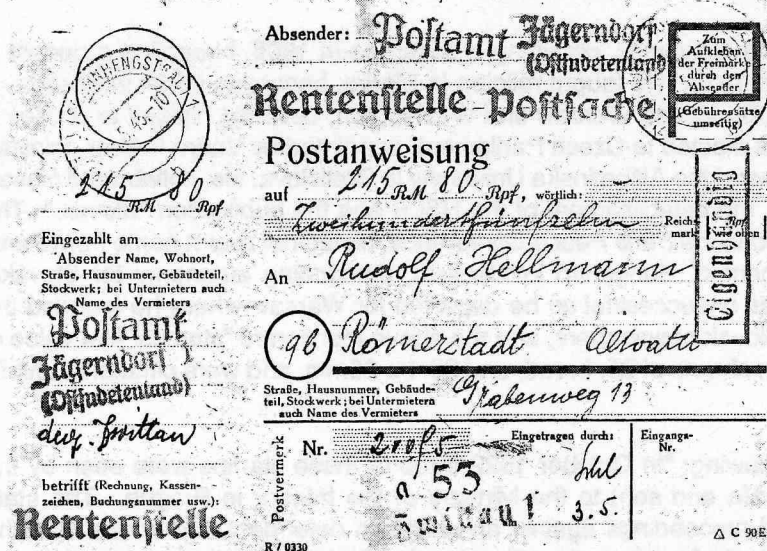 215 RM 80 Rpf
Eingezahlt am
Absender Name, Wohnort,
Straße, Hausnummer, Gebäudeteil,
Stockwerk; bei Untermietern auch
Name des Vermieters
Postamt
Jägerndorf 1
(Ostsudetenland)
betrifft (Rechnung, Kassen-
zeichen, Buchungsnummer usw.):
Rentenstelle
Absender: Postamt Jägerndorf
(Ostsudetenland)
Rentenstelle-Postsache
Zum
Aufkleben
der Freimarke
durch den
Absender
(Gebührensätze
umseitig)
Postanweisung
auf 215 RM 80 Rpf, wörtlich:
Zweihundertfünfzehn Reichs-
mark Rpf wie oben
An Rudolf Hellmann
Eigenhändig
9b Römerstadt Altvater
Straße, Hausnummer, Gebäude-
teil, Stockwerk; bei Untermietern
auch Name des Vermieters
Grabenweg 13
Postvermerk
Nr.
Eingetragen durch:
Eingangs-
Nr.
a 53
Zwittau 1 3.5.
R / 0330
△ C 90E